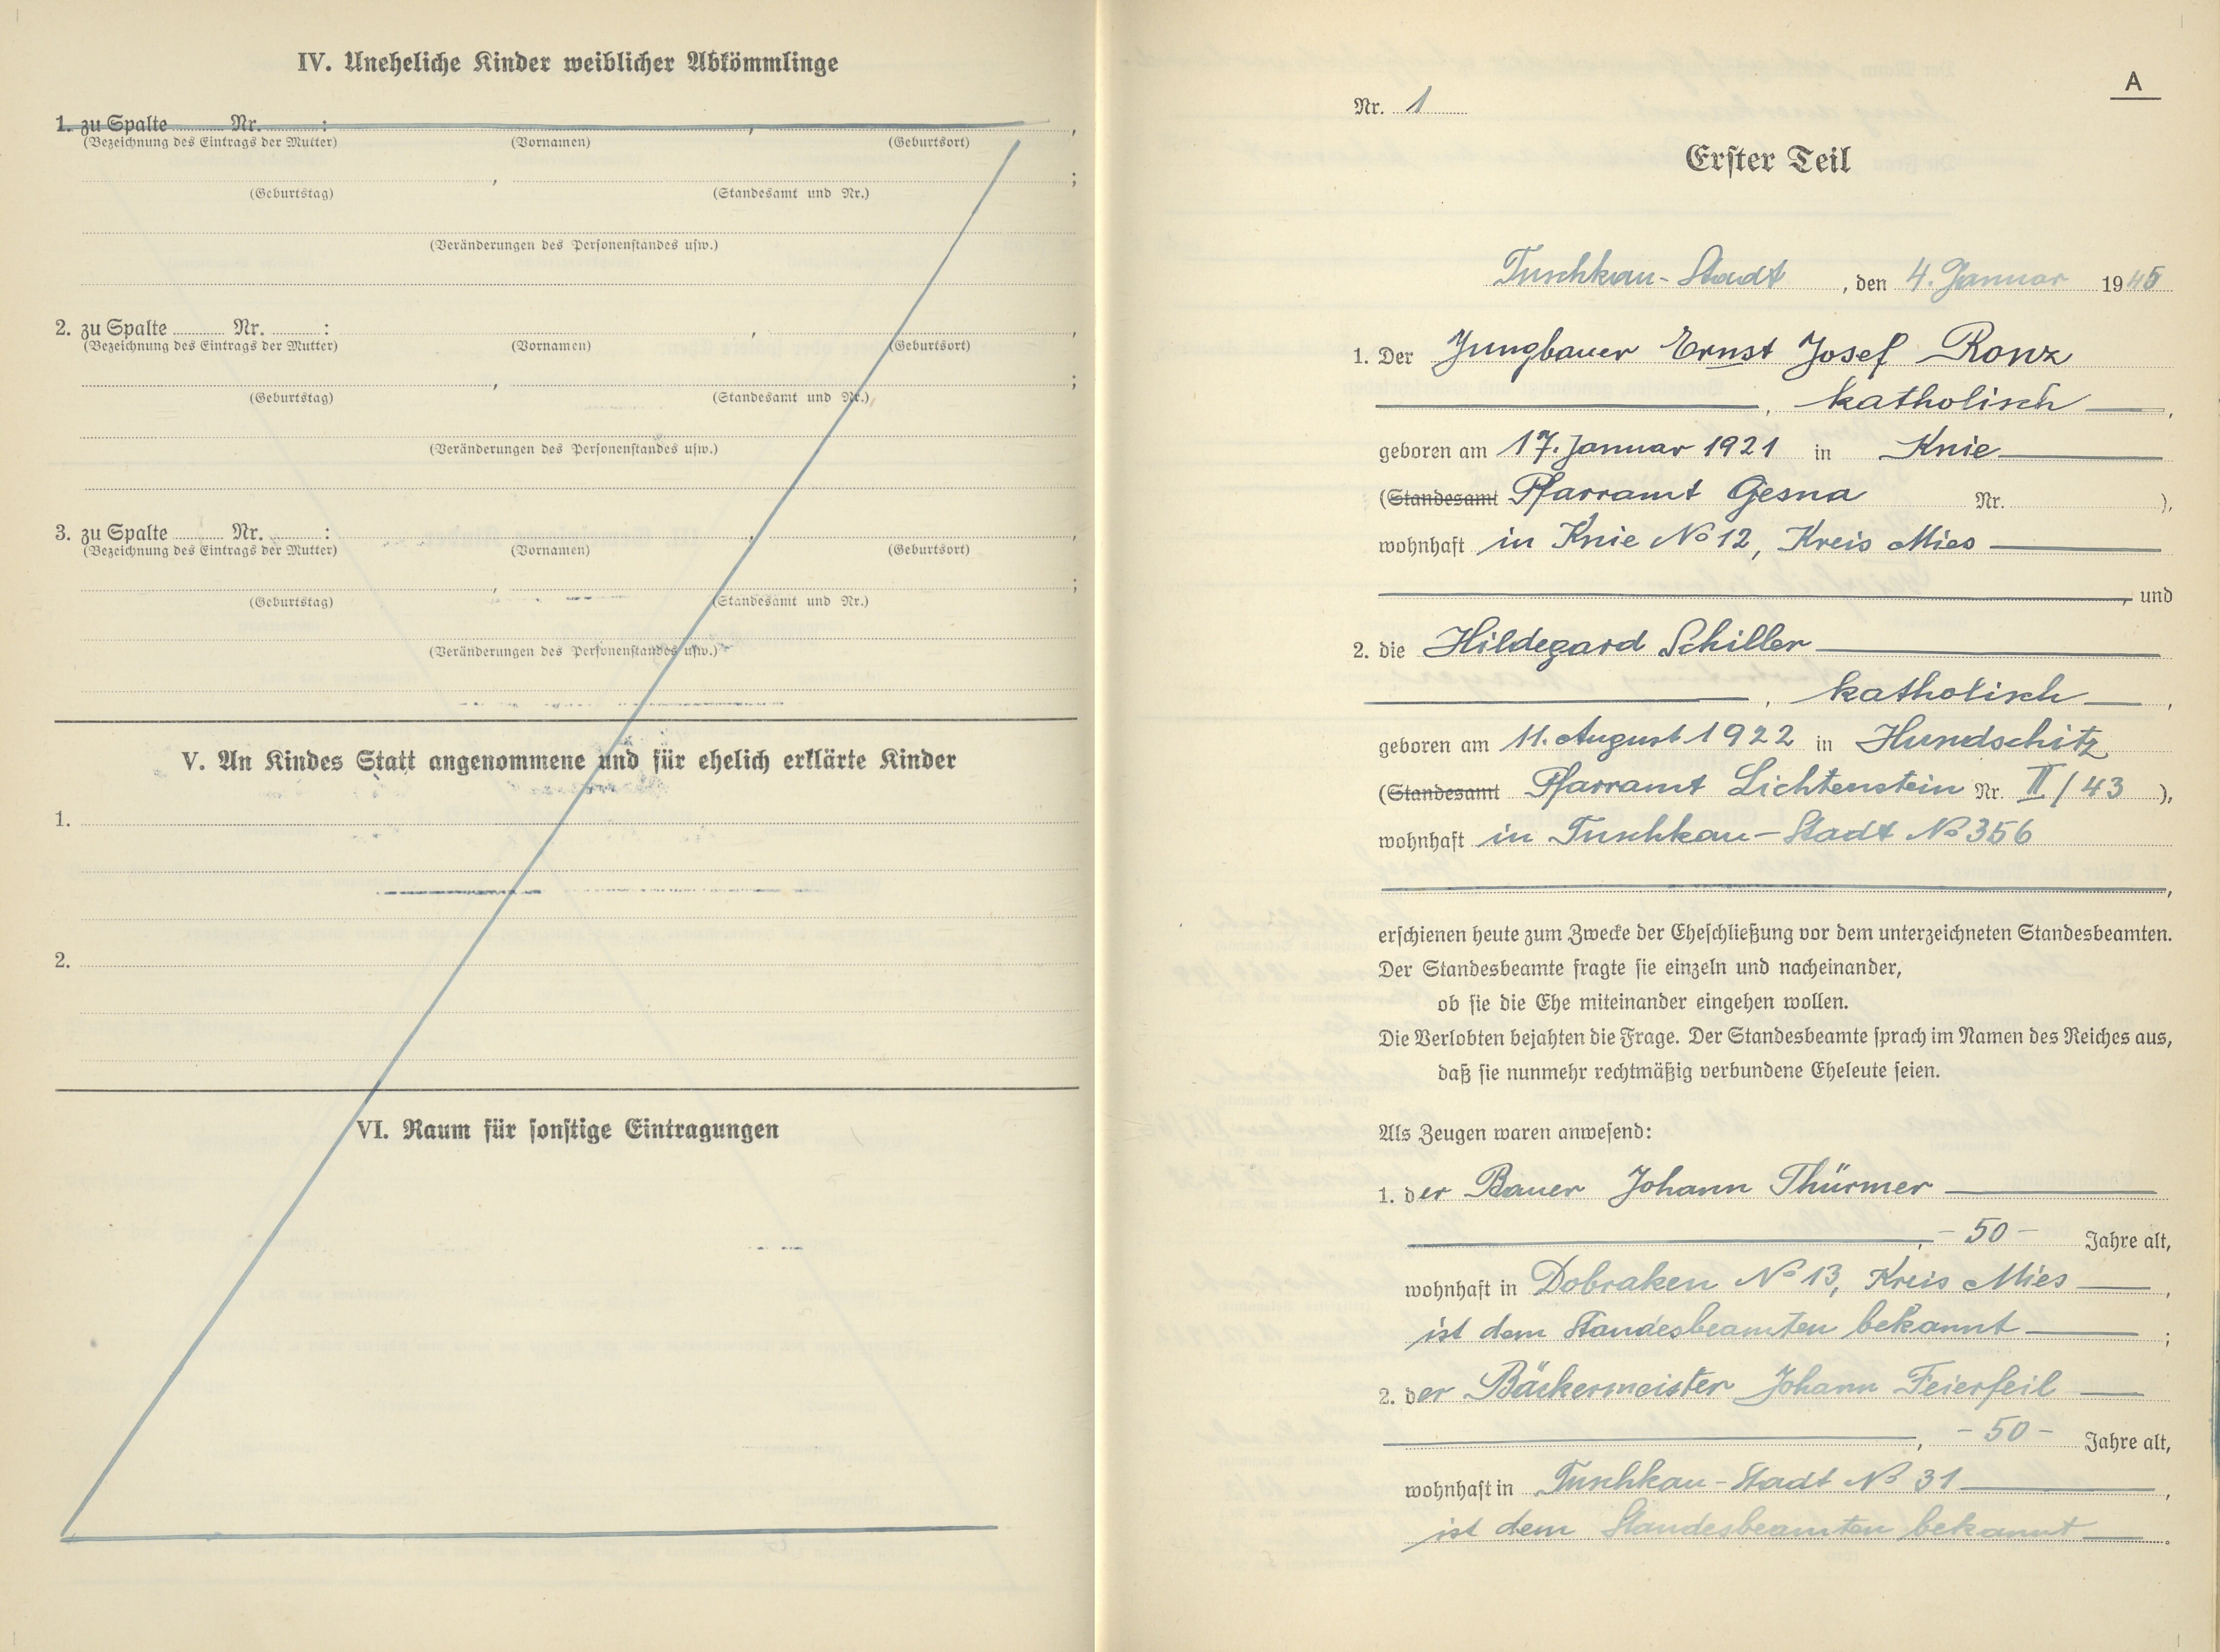 IV. Uneheliche Kinder weiblicher Abkömmlinge
1. zu Spalte ........ Nr. ........ : , ,
(Bezeichnung des Eintrags der Mutter) (Vornamen) (Geburtsort)
, ;
(Geburtstag) (Standesamt und Nr.)
(Veränderungen des Personenstandes usw.)
2. zu Spalte ........ Nr. ........ : , ,
(Bezeichnung des Eintrags der Mutter) (Vornamen) (Geburtsort)
, ;
(Geburtstag) (Standesamt und Nr.)
(Veränderungen des Personenstandes usw.)
3. zu Spalte ........ Nr. ........ : , ,
(Bezeichnung des Eintrags der Mutter) (Vornamen) (Geburtsort)
, ;
(Geburtstag) (Standesamt und Nr.)
(Veränderungen des Personenstandes usw.)
V. An Kindes Statt angenommene und für ehelich erklärte Kinder
1.
2.
VI. Raum für sonstige Eintragungen
A
Nr. 1
Erster Teil
Tuschkau-Stadt, den 4. Januar 1945
1. Der Jungbauer Ernst Josef Ronz
, katholisch,
geboren am 17. Januar 1921 in Knie
(Standesamt Pfarramt Gesna Nr. ),
wohnhaft in Knie No 12, Kreis Mies
, und
2. die Hildegard Schiller
, katholisch,
geboren am 11. August 1922 in Hundschitz
(Standesamt Pfarramt Lichtenstein Nr. II/43),
wohnhaft in Tuschkau-Stadt No 356
,
erschienen heute zum Zwecke der Eheschließung vor dem unterzeichneten Standesbeamten.
Der Standesbeamte fragte sie einzeln und nacheinander,
ob sie die Ehe miteinander eingehen wollen.
Die Verlobten bejahten die Frage. Der Standesbeamte sprach im Namen des Reiches aus,
daß sie nunmehr rechtmäßig verbundene Eheleute seien.
Als Zeugen waren anwesend:
1. der Bauer Johann Thürmer
, - 50 - Jahre alt,
wohnhaft in Dobraken No 13, Kreis Mies,
ist dem Standesbeamten bekannt;
2. der Bäckermeister Johann Feierfeil
, - 50 - Jahre alt,
wohnhaft in Tuschkau-Stadt No 31,
ist dem Standesbeamten bekannt.